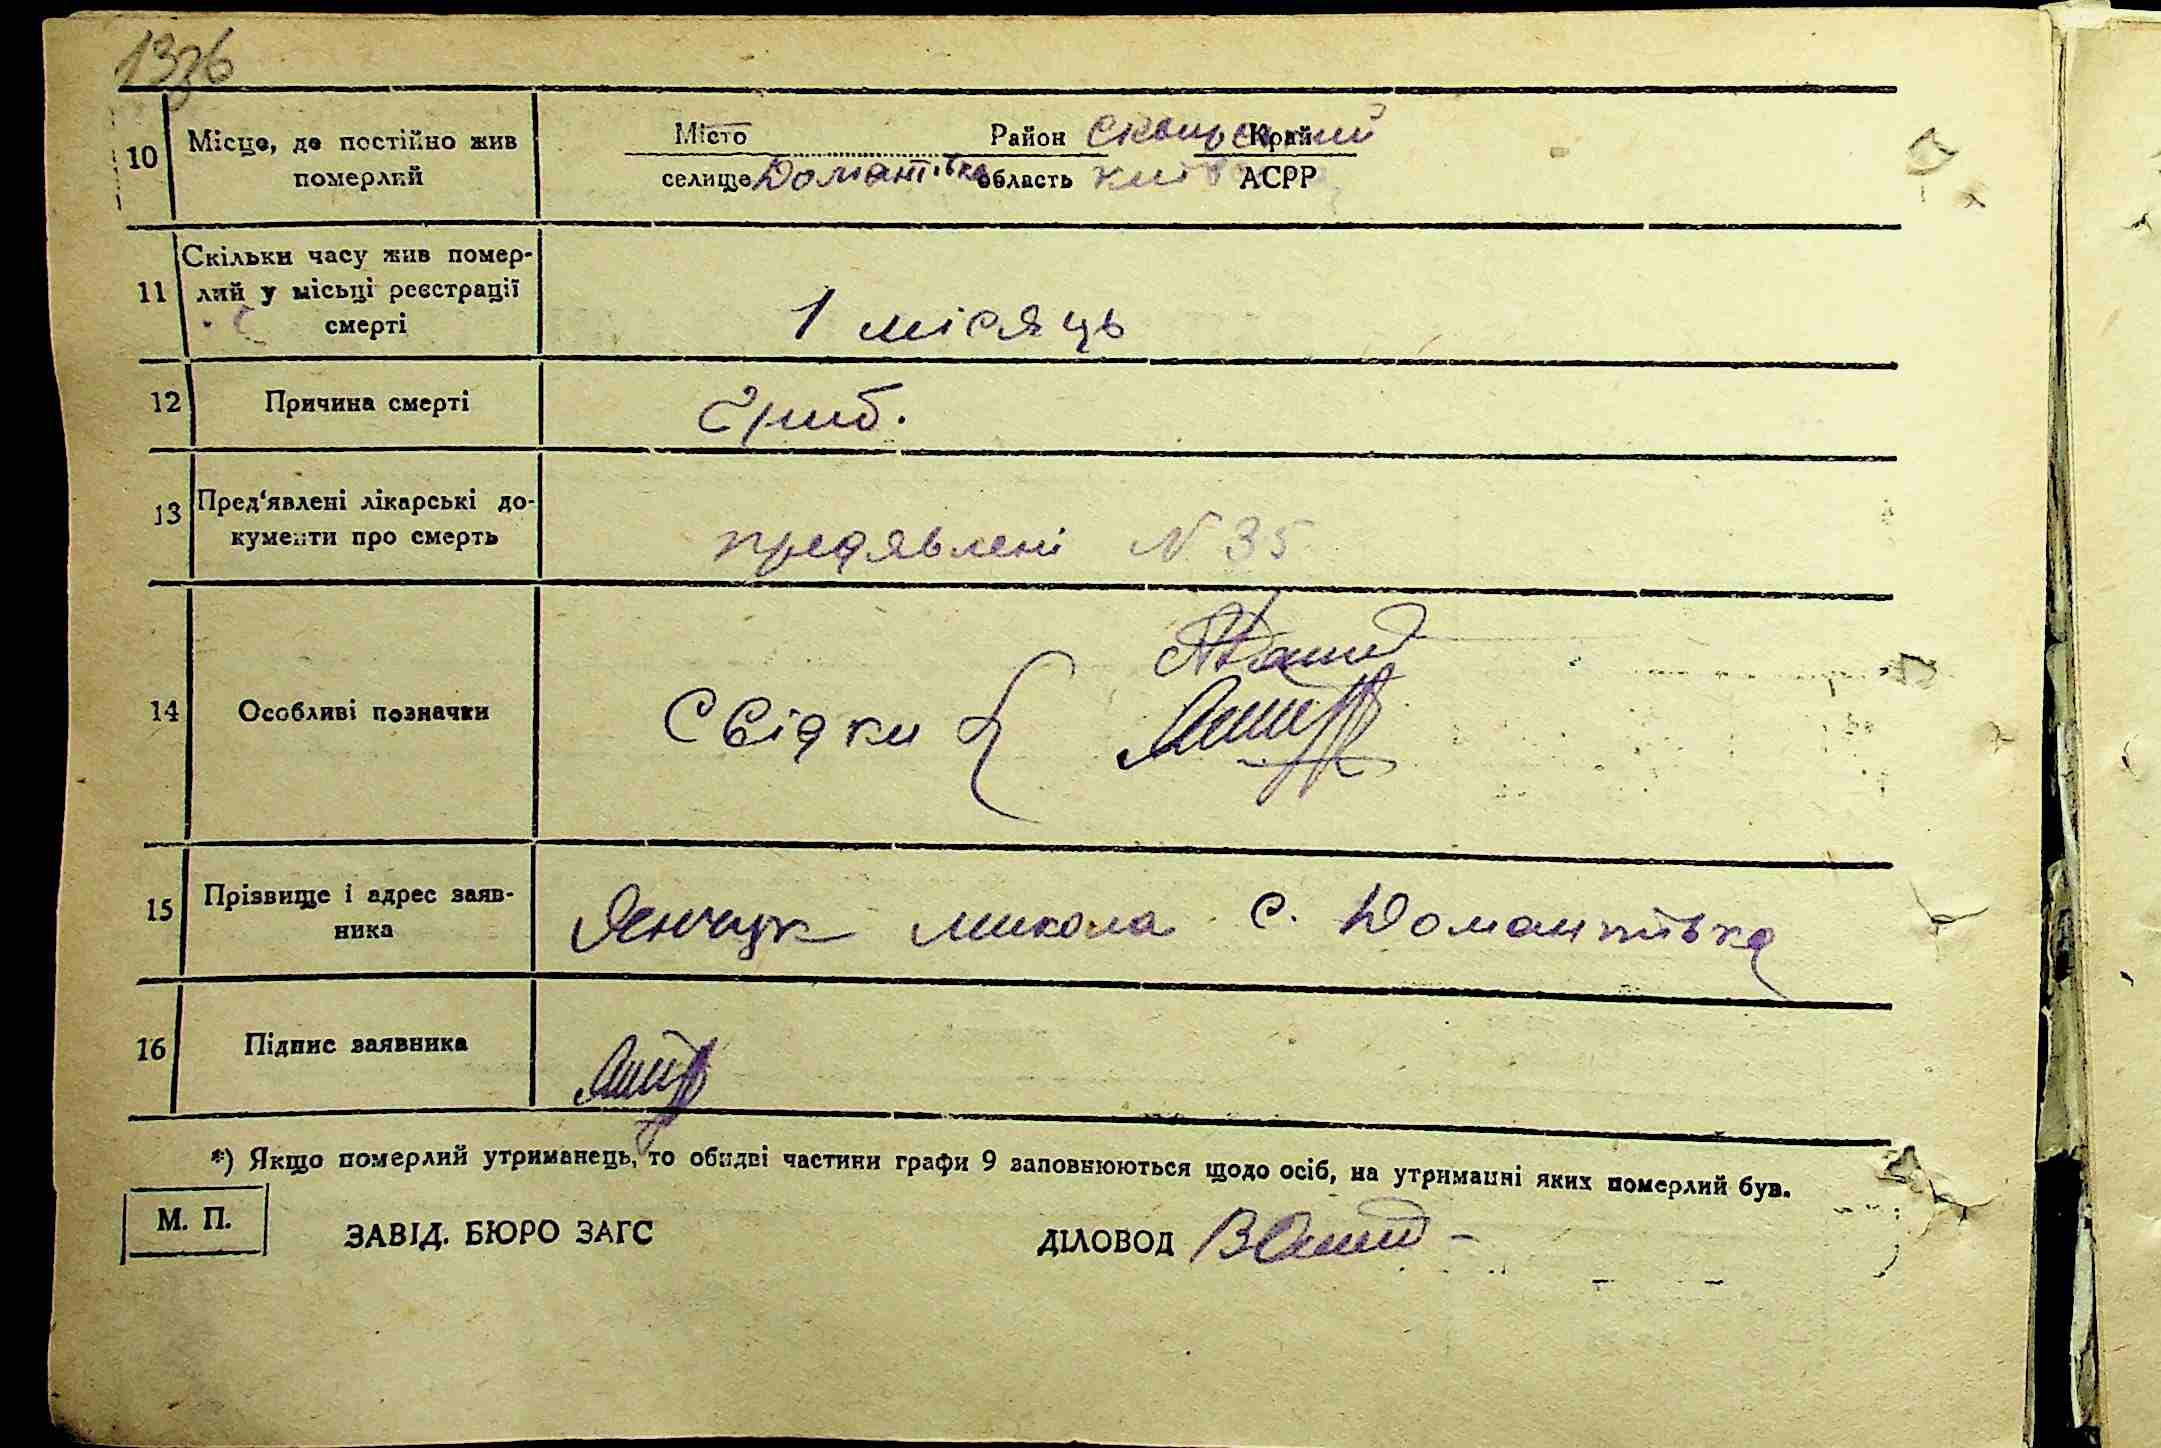 10 Місце, де постійно жив
померлий
Місто Район Сквирський Край
селище Домантівка область Київська АСРР
11 Скільки часу жив помер-
лий у місьці реєстрації
смерті
1 місяць
12 Причина смерті
Гриб.
13 Пред‘явлені лікарські до-
кументи про смерть
предявлені N 35
14 Особливі позначки
Свідки {
15 Прізвище і адрес заяв-
ника
Янчук микола с. Домантівка
16 Підпис заявника
*) Якщо померлий утриманець, то обидві частини графи 9 заповнюються щодо осіб, на утриманні яких померлий був.
М. П.
ЗАВІД. БЮРО ЗАГС ДІЛОВОД